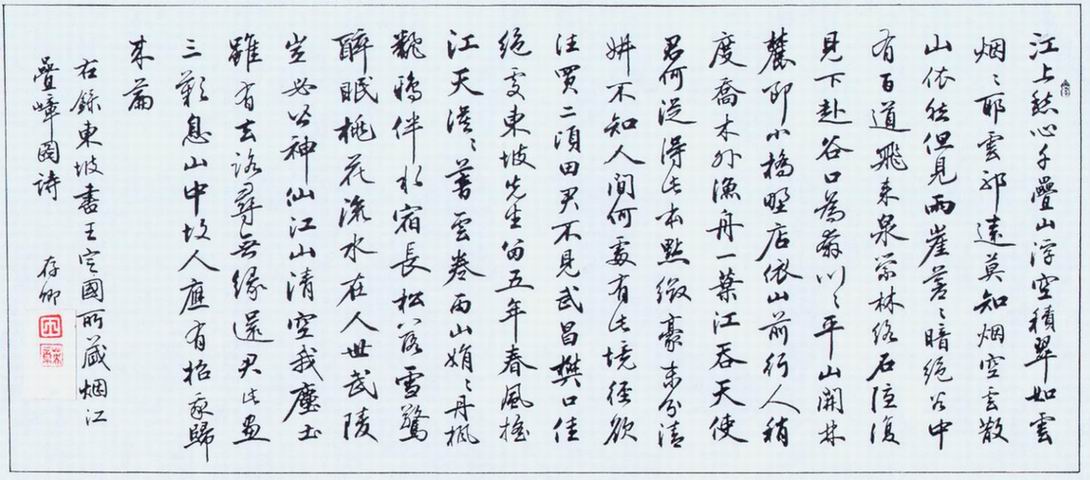 江上愁心千疊山浮空積翠如雲
烟〻耶雲邪遠莫知烟空云散
山依然但見兩崖蒼〻暗絕谷中
有百道飛來泉縈林絡石隱復
見下赴谷口為奔川〻平山開林
麓斷小橋野店依山前行人稍
度喬木外漁舟一葉江吞天使
君何從得此本點綴豪末分清
妍不知人間何處有此境徑欲
往買二頃田君不見武昌樊口佳
絕處東坡先生留五年春風搖
江天漠〻暮雲卷雨山娟〻丹楓
翻鴉伴水宿長松落雪驚
醉眠桃花流水在人世武陵
豈必皆神仙江山清空我塵土
雖有去路尋無緣還君此畫
三歎息山中故人應有招我歸
來篇
右錄東坡書王定國所藏烟江
疊嶂圖詩 存卿